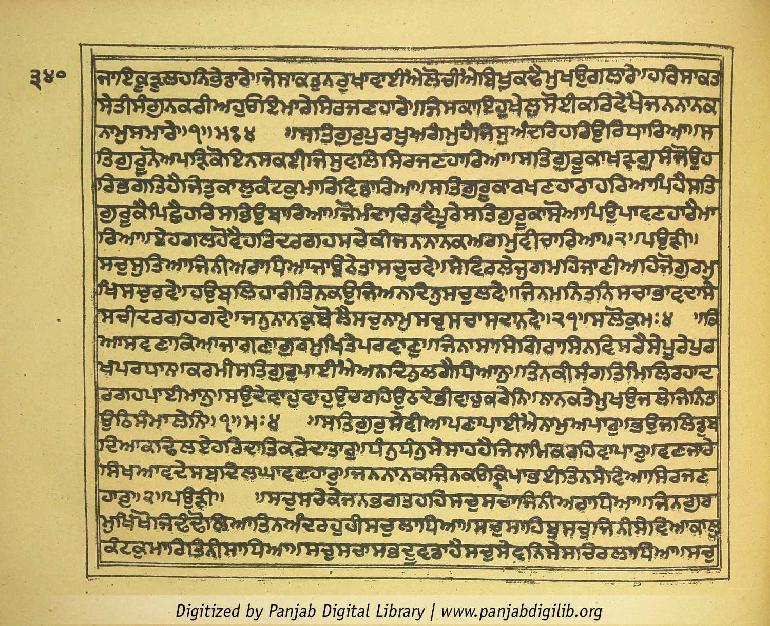 ੩੪੦
ਜਾਇਕੂਕੁਲਹਨਿਭੇਤਾਰੇ॥ਜੇਸਾਕਤੁਨਰੁਖਾਵਾਈਐਲੋਚੀਐਬਿਖੁਕਢੈਮੁਖਉਗਲਾਰੇ॥ਹਰਿਸਾਕਤ
ਸੇਤੀਸੰਗੁਨਕਰੀਅਹੁਓਇਮਾਰੇਸਿਰਜਣਹਾਰੇ॥ਜਿਸਕਾਇਹੁਖੇਲੁਸੋਈਕਰਿਵੇਖੈਜਨਨਾਨਕ
ਨਾਮੁਸਮਾਰੇ॥੧॥ਮਃ੪ ॥ਸਤਿਗੁਰੁਪੁਰਖੁਅਗੰਮੁਹੈਜਿਸੁਅੰਦਰਿਹਰਿਉਰਿਧਾਰਿਆ॥ਸ
ਤਿਗੁਰੂਨੋਅਪੜਿਕੋਇਨਸਕਈਜਿਸੁਵਲਿਸਿਰਜਣਹਾਰਿਆ॥ਸਤਿਗੁਰੂਕਾਖੜਗੁਸੰਜੋਉਹ
ਰਿਭਗਤਿਹੈਜਿਤੁਕਾਲੁਕੰਟਕੁਮਾਰਿਵਿਡਾਰਿਆ॥ਸਤਿਗੁਰੂਕਾਰਖਣਹਾਰਾਹਰਿਆਪਿਹੈਸਤਿ
ਗੁਰੂਕੈਪਿਛੈਹਰਿਸਭਿਉਬਾਰਿਆ॥ਜੋਮੰਦਾਚਿਤਵੈਪੂਰੇਸਤਿਗੁਰੂਕਾਸੋਆਪਿਉਪਾਵਣਹਾਰੈਮਾ
ਰਿਆ॥ਏਹਗਲਹੋਵੈਹਰਿਦਰਗਹਸਚੇਕੀਜਨਨਾਨਕਅਗਮੁਵੀਚਾਰਿਆ॥੨॥ਪਉੜੀ॥
ਸਚੁਸੁਤਿਆਜਿਨੀਅਰਾਧਿਆਜਾਉਠੇਤਾਸਚੁਚਵੇ॥ਸੇਵਿਰਲੇਜੁਗਮਹਿਜਾਣੀਅਹਿਜੋਗੁਰਮੁ
ਖਿਸਚੁਰਵੇ॥ਹਉਬਲਿਹਾਰੀਤਿਨਕਉਜਿਅਨਦਿਨੁਸਚੁਲਵੇ॥ਜਿਨਮਨਿਤਨਿਸਚਾਭਾਵਦਾਸੇ
ਸਚੀਦਰਗਹਗਵੇ॥ਜਨੁਨਾਨਕੁਬੋਲੈਸਚੁਨਾਮੁਸਚੁਸਚਾਸਦਾਨਵੇ॥੨੧॥ਸਲੋਕੁਮਃ੪ ॥ਕਿ
ਆਸਵਣਾਕਿਆਜਾਗਣਾਗੁਰਮੁਖਿਤੇਪਰਵਾਣੁ॥ਜਿਨਾਸਾਸਿਗਿਰਾਸਿਨਵਿਸਰੈਸੇਪੂਰੇਪੁਰ
ਖਪਰਧਾਨ॥ਕਰਮੀਸਤਿਗੁਰੁਪਾਈਐਅਨਦਿਨੁਲਗੈਧਿਆਨੁ॥ਤਿਨਕੀਸੰਗਤਿਮਿਲਿਰਹਾਦ
ਰਗਹਪਾਈਮਾਨੁ॥ਸਉਦੇਵਾਹੁਵਾਹੁਉਚਰਹਿਉਠਦੇਭੀਵਾਹੁਕਰੇਨਿ॥ਨਾਨਕਤੇਮੁਖਉਜਲੇਜਿਨਿਤ
ਉਠਿਸੰਮਾਲੇਨਿ॥੧॥ਮਃ੪ ॥ਸਤਿਗੁਰੁਸੇਵੀਆਪਣਾਪਾਈਐਨਾਮੁਅਪਾਰੁ॥ਭਉਜਲਿਡੁਬ
ਦਿਆਕਢਿਲਏਹਰਿਦਾਤਿਕਰੇਦਾਤਾਰੁ॥ਧੰਨੁਧੰਨੁਸੇਸਾਹਹੈਜਿਨਾਮਿਕਰਹਿਵਾਪਾਰੁ॥ਵਣਜਾਰੇ
ਸਿਖਆਵਦੇਸਬਦਿਲਘਾਵਣਹਾਰੁ॥ਜਨਨਾਨਕਜਿਨਕਉਕ੍ਰਿਪਾਭਈਤਿਨਸੇਵਿਆਸਿਰਜਣ
ਹਾਰੁ॥੨॥ਪਉੜੀ॥ ॥ਸਚੁਸਚੇਕੇਜਨਭਗਤਹਹਿਸਚੁਸਚਾਜਿਨੀਅਰਾਧਿਆ॥ਜਿਨਗੁਰ
ਮੁਖਿਖੋਜਿਢੰਢੋਲਿਆਤਿਨਅੰਦਰਹੁਹੀਸਚੁਲਾਧਿਆ॥ਸਚੁਸਾਹਿਬੁਸਚੁਜਿਨੀਸੇਵਿਆਕਾਲੁ
ਕੰਟਕੁਮਾਰਿਤਿਨੀਸਾਧਿਆ॥ਸਚੁਸਚਾਸਭਦੂਵਡਾਹੈਸਚੁਸੇਵਨਿਸੇਸਚਿਰਲਾਧਿਆ॥ਸਚੁ
Digitized by Panjab Digital Library | www.panjabdigilib.org